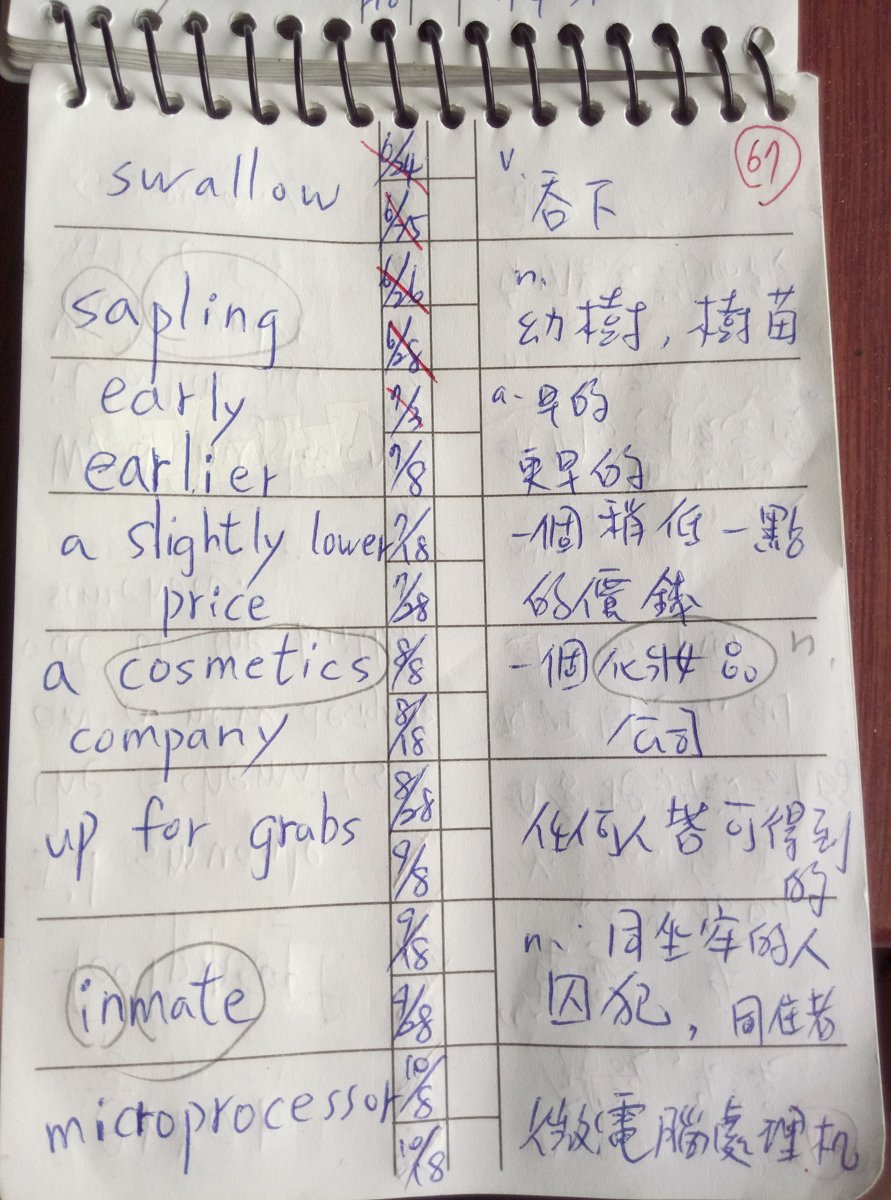 67
swallow
6/24
6/25
v.
吞下
sapling
6/26
6/28
n.
幼樹，樹苗
early
7/3
a. 早的
earlier
7/8
更早的
a slightly lower
7/18
一個稍低一點
price
7/28
的價錢
a cosmetics
8/8
一個化妝品 n.
company
8/18
公司
up for grabs
8/28
9/8
任何人皆可得到
的
inmate
9/18
n. 同坐牢的人
9/28
囚犯，同住者
microprocessor
10/8
10/18
微電腦處理机